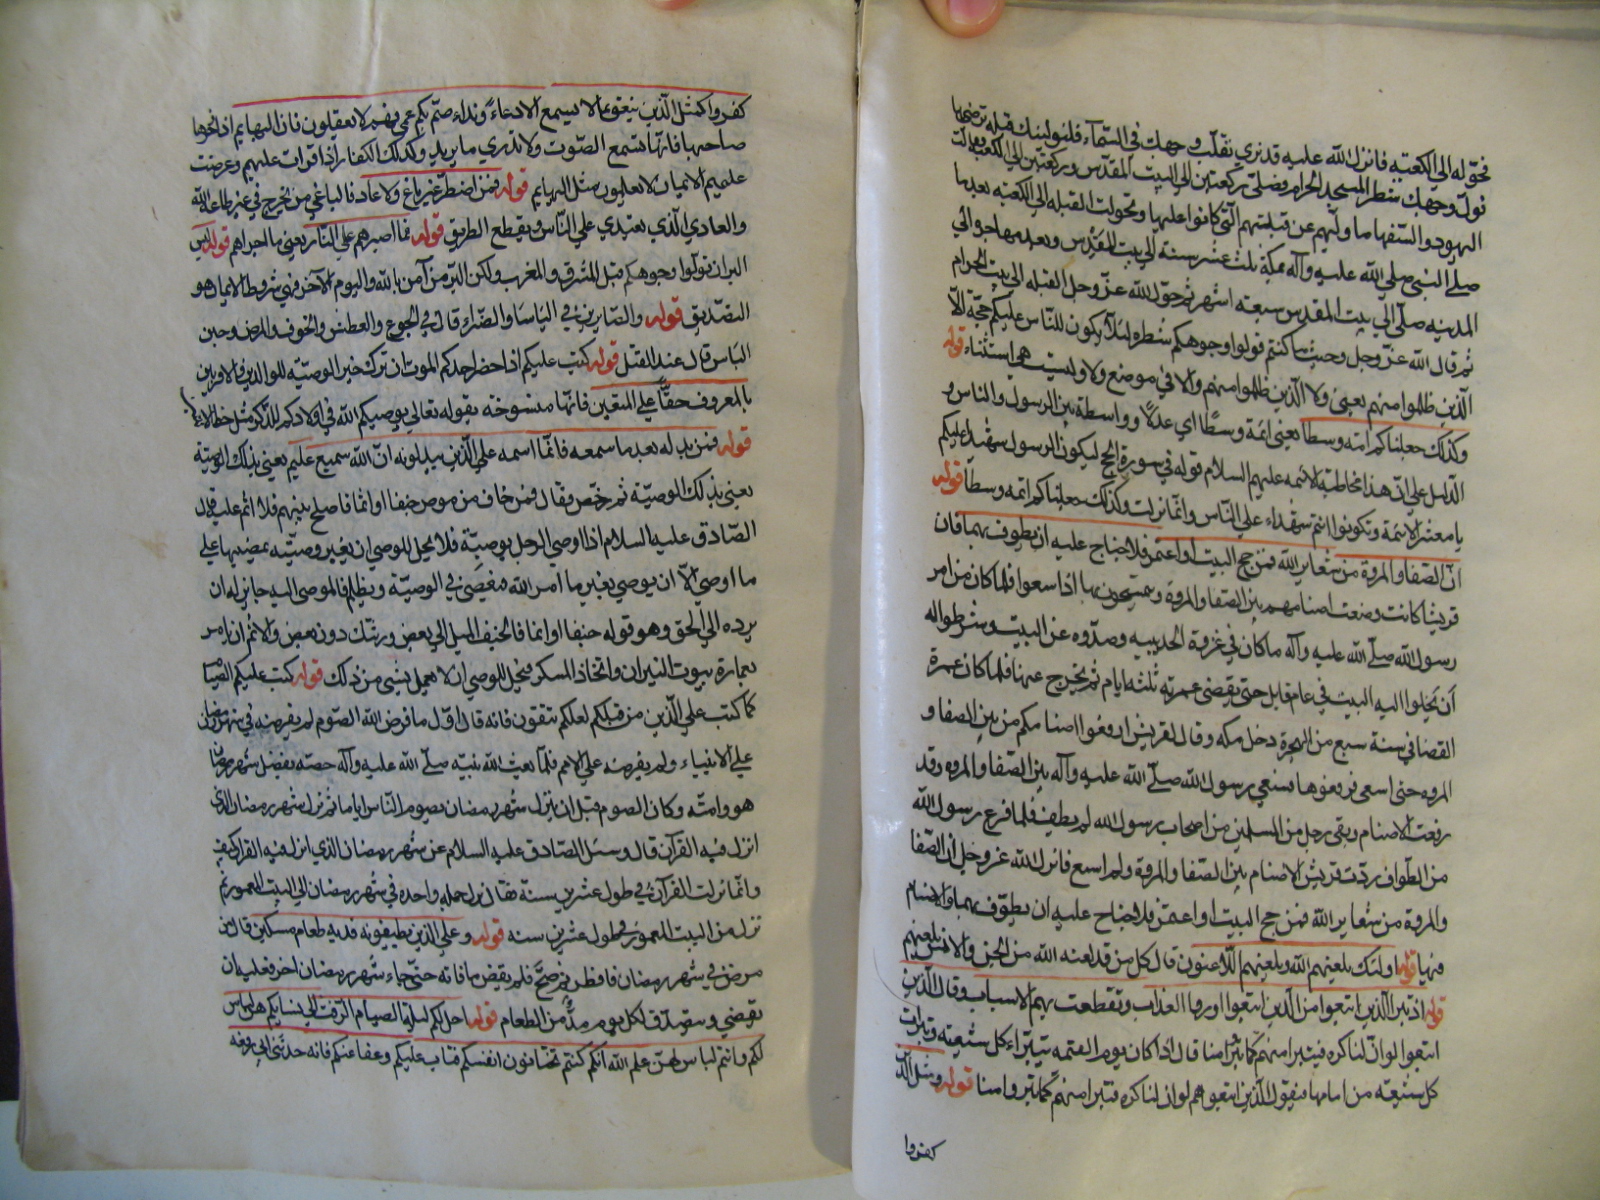 فحوله الى الكعبة فانزل الله عليه قد نرى تقلب وجهك في السماء فلنولينك قبلة ترضها
فول وجهك شطر المسجد الحرام وصلى ركعتين الى البيت المقدس وركعتين الى الكعبة وقالت
اليهود والسفها ما ولهم عن قبلتهم التي كانوا عليها وتحولت القبلة الى الكعبة بعدما
صلى النبي صلى الله عليه وآله بمكة ثلث عشر سنة الى بيت المقدس وبعد مهاجره الى
المدينه صلى الى بيت المقدس سبعة اشهر ثم حول الله عز وجل القبله الى بيت الحرام
ثم قال الله عز وجل وحيث ما كنتم فولوا وجوهكم شطره لئلا يكون للناس عليكم حجة الا
الذين ظلموا منهم يعني ولا الذين ظلموا منهم والا في موضع ولا وليست هي استثناء قوله
وكذلك جعلناكم امة وسطا يعني ائمة وسطا اي عدلا وواسطة بين الرسول والناس و
الدليل على ان هذا مخاطبة لائمه عليهم السلام قوله في سورة الحج ليكون الرسول شهيدا عليكم
يا معشر الائمة وتكونوا انتم شهداء على الناس وانما نزلت وكذلك جعلناكم ائمة وسطا قوله
ان الصفا والمروة من شعاير الله فمن حج البيت او اعتمر فلا جناح عليه ان يطوف بهما فان
قريشا كانت وضعت اصنامهم بين الصفا والمروة ويتمسحون بها اذا سعوا فلما كان من امر
رسول الله صلى الله عليه وآله ما كان في غزوة الحديبيه وصدوه عن البيت وشرطوا له
أن يخلوا اليه البيت في عام قابل حتى يقضي عمرته ثلثه ايام ثم يخرج عنها فلما كان عمرة
القضا في سنة سبع من الهجرة دخل مكه وقال لقريش ارفعوا اصنامكم من بين الصفا و
المروه حتى اسعى فرفعوها فسعى رسول الله صلى الله عليه وآله بين الصفا والمروه وقد
رفعت الاصنام وبقى رجل من المسلمين من اصحاب رسول الله لم يطف فلما فرغ رسول الله
من الطواف ردت قريش الاصنام بين الصفا والمروة ولم اسع فانزل الله عز وجل ان الصفا
والمروة من شعاير الله فمن حج البيت او اعتمر فلا جناح عليه ان يطوف بهما والاصنام
فيها قوله اولئك يلعنهم الله ويلعنهم اللاعنون قال كل من قد لعنه الله من الجن والانس يلعنهم
قوله اذ تبرا الذين اتبعوا من الذين اتبعوا وراوا العذاب وتقطعت بهم الاسباب وقال الذين
اتبعوا لو ان لنا كرة فنتبرا منهم كما تبرا منا قال اذا كان يوم القيمه تبرا كل شيعته وتبرات
كل شيعته من امامها فيقول الذين اتبعوهم لو ان لنا كرة فنتبرا منهم كما تبروا منا قوله ومثل الذين
كفروا
كفروا كمثل الذين ينعق بما لا يسمع الا دعاء ونداء صم بكم عمي فهم لا يعقلون فان البهايم اذا
صاحبها فانها تسمع الصوت ولا تدري ما يريد وكذلك الكفار اذا قرات عليهم وعرضت
عليهم الايمان لا يعلمون مثل البهايم قوله فمن اضطر غير باغ ولا عاد فالباغي من يخرج في غير طاعة الله
والعادي الذي يعتدي على الناس ويقطع الطريق قوله فما اصبرهم على النار يعني ما اجراهم قوله ليس
البر ان تولوا وجوهكم قبل المشرق والمغرب ولكن البر من آمن بالله واليوم الآخر فهي شروط الايمان هو
التصديق قوله والصابرين في الباسا والضراء قال في الجوع والعطش والخوف والمرض وحين
الباس قال عند القتل قوله كتب عليكم اذا حضر احدكم الموت ان ترك خير الوصية للوالدين والاقربين
بالمعروف حقا على المتقين فانها منسوخه بقوله تعالى يوصيكم الله في اولادكم للذكر مثل حظ الانثيين
قوله فمن بدله بعد ما سمعه فانما اثمه على الذين يبدلونه ان الله سميع عليم يعني بذلك الوصية
يعني بذلك الوصية ثم رخص فقال فمن خاف من موص جنفا او اثما فاصلح بينهم فلا اثم عليه قال
الصادق عليه السلام اذا اوصى الرجل بوصية فلا يحل للوصي ان يغير وصيته يمضيها على
ما اوصى الا ان يوصي بغير ما امر الله فيعصي في الوصية ويظلم فالموصى اليه جايز له ان
يرده الى الحق وهو قوله جنفا او اثما فالجنف الميل الى بعض ورثتك دون بعض والاثم ان يامر
بعمارة بيوت النيران واتخاذ المسكر فيحل للوصي ان لا يعمل بشي من ذلك قوله كتب عليكم الصيام
كما كتب على الذين من قبلكم لعلكم تتقون فانه قال اول ما فرض الله الصوم لم يفرضه في شهر رمضان
على الانبياء ولم يفرضه على الامم فلما بعث الله نبيه صلى الله عليه وآله خصه بفضل شهر رمضان
هو وامته وكان الصوم قبل ان ينزل شهر رمضان يصوم الناس اياما ثم نزل شهر رمضان الذي
انزل فيه القرآن قال وسئل الصادق عليه السلام عن شهر رمضان الذي انزل فيه القران كيف
وانما نزلت القرآن في طول عشرين سنة فقال نزل جمله واحده في شهر رمضان الى البيت المعمور ثم
نزل من البيت المعمور في طول عشرين سنه قوله وعلى الذين يطيقونه فديه طعام مسكين قال من
مرض في شهر رمضان فافطر ثم صح فلم يقض ما فاته حتى جاء شهر رمضان اخر فعليه ان
يقضي ويتصدق لكل يوم مد من الطعام قوله احل لكم ليلة الصيام الرفث الى نسايكم هن لباس
لكم وانتم لباس لهن علم الله انكم كنتم تختانون انفسكم فتاب عليكم وعفا عنكم فانه حدثني ابي رفعه